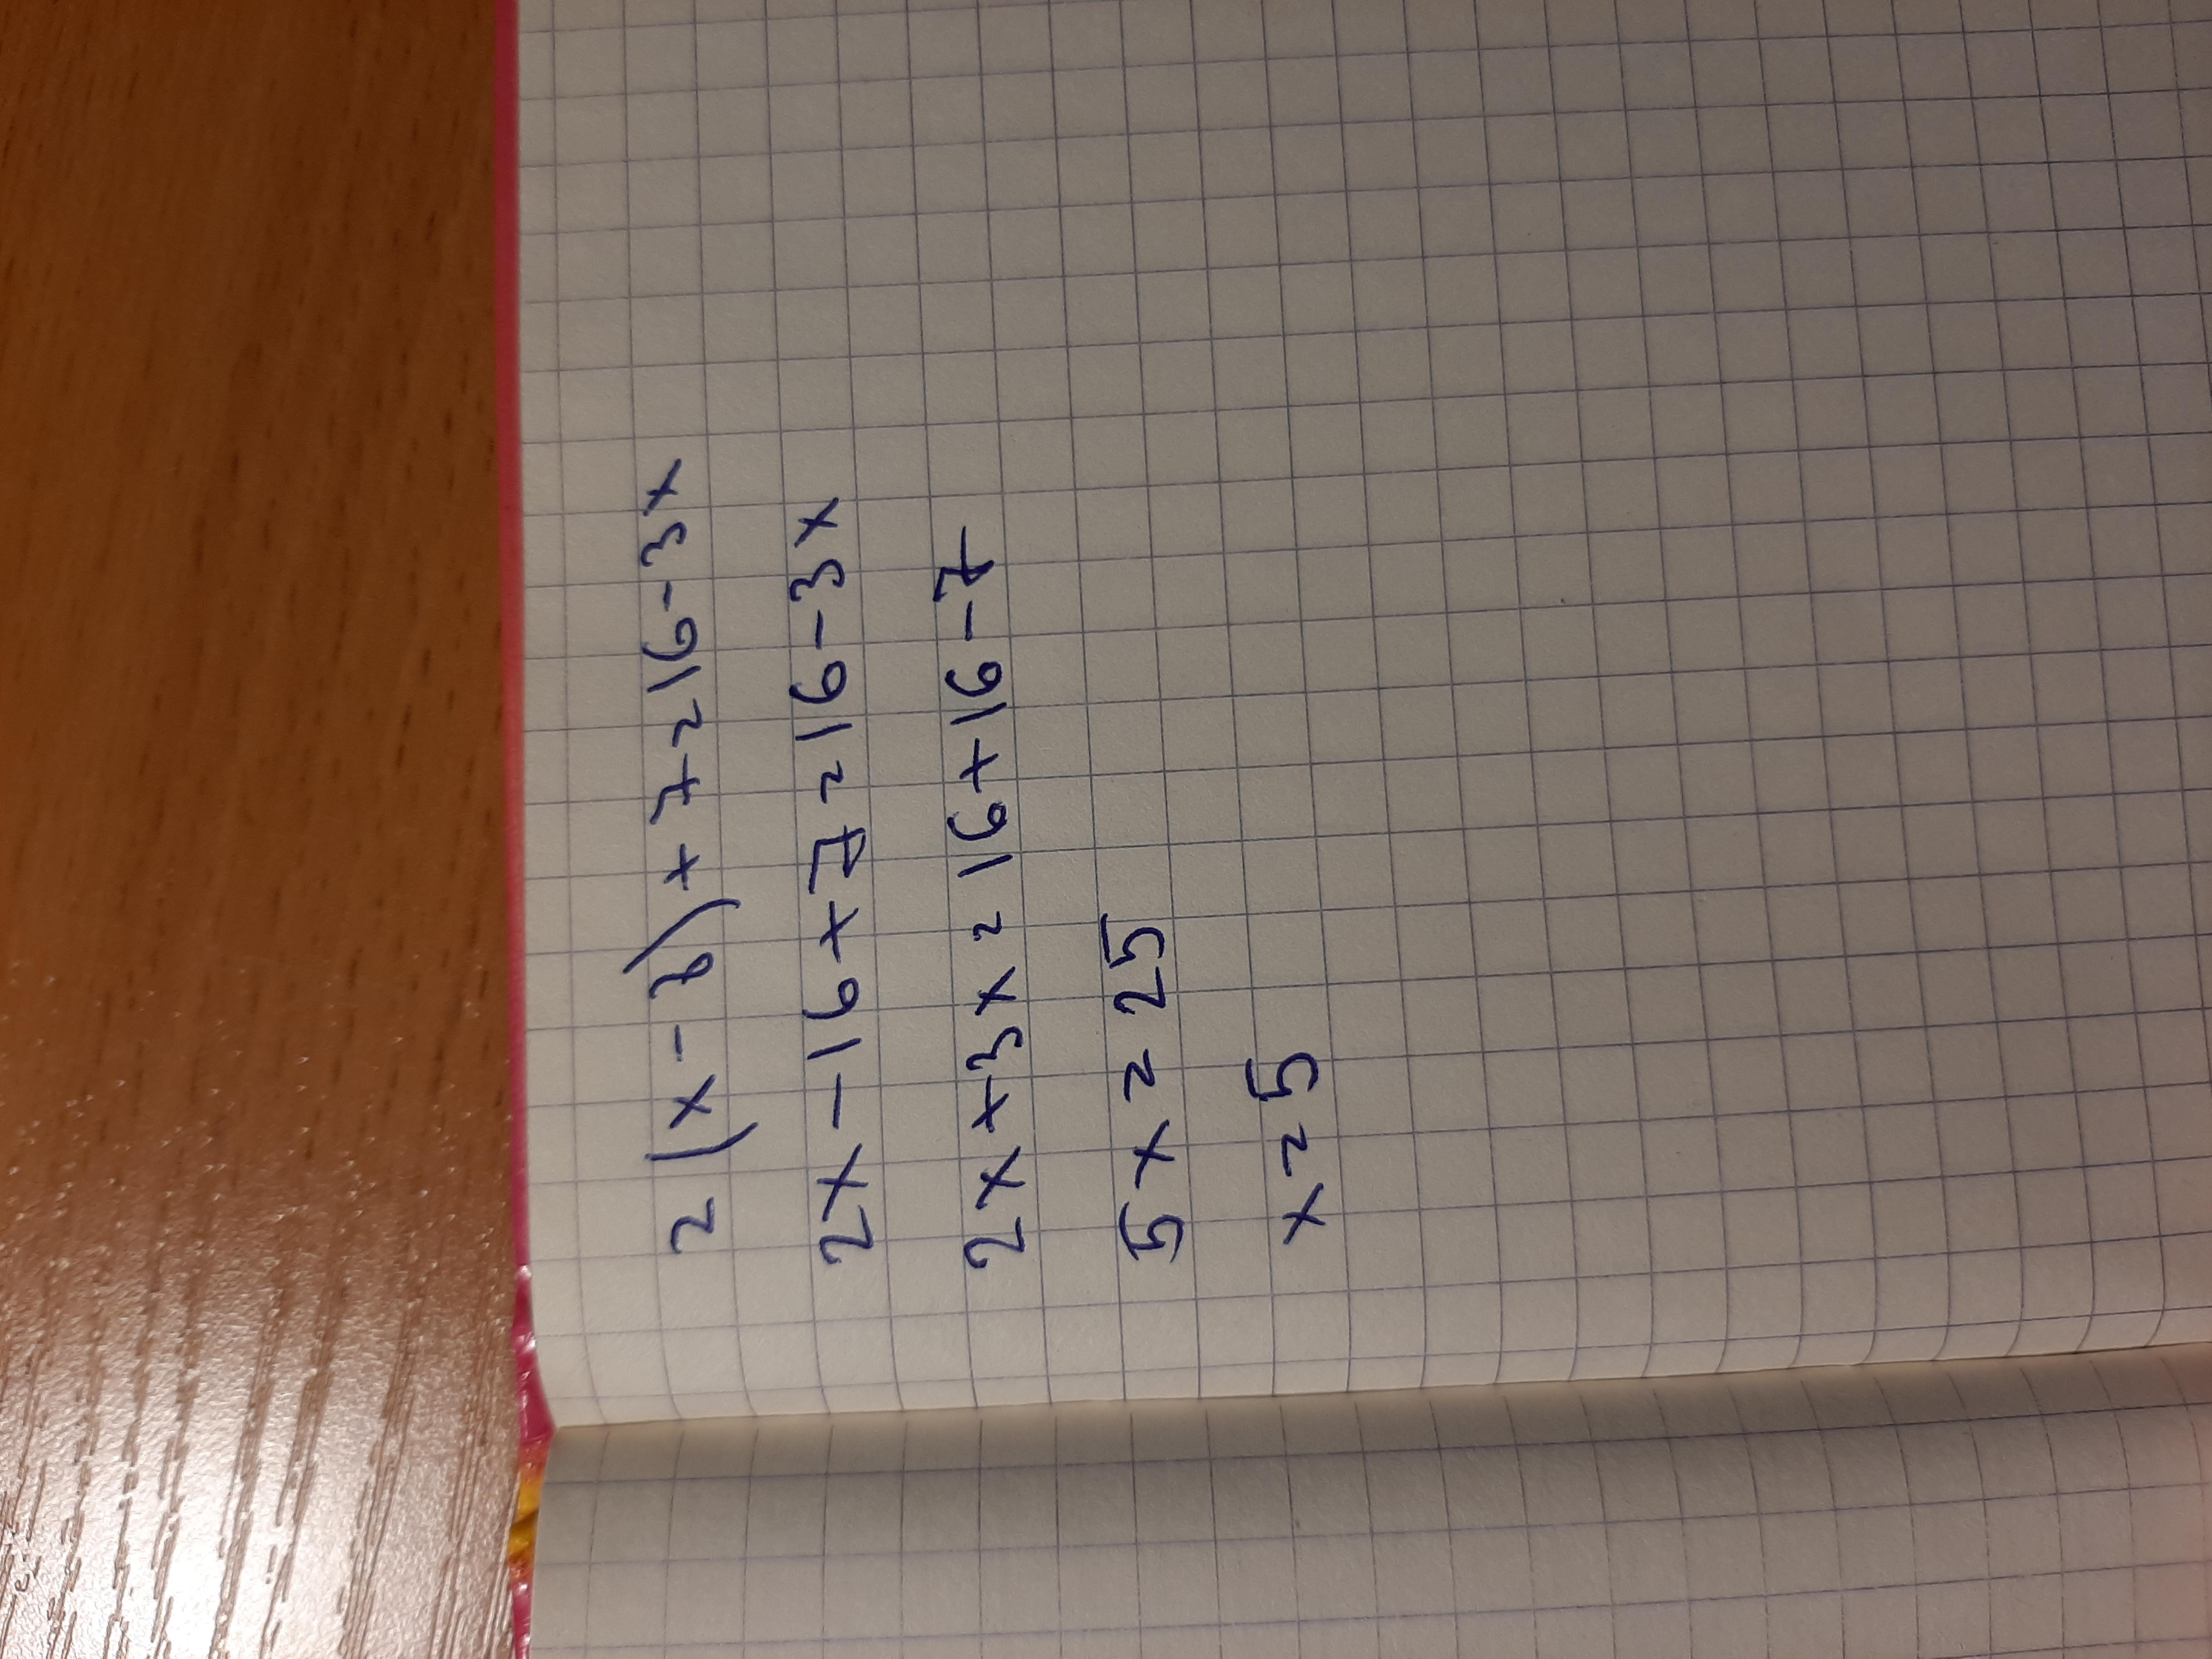 2(x-8)+7=16-3x
2x-16+7=16-3x
2x+3x=16+16-7
5x=25
x=5